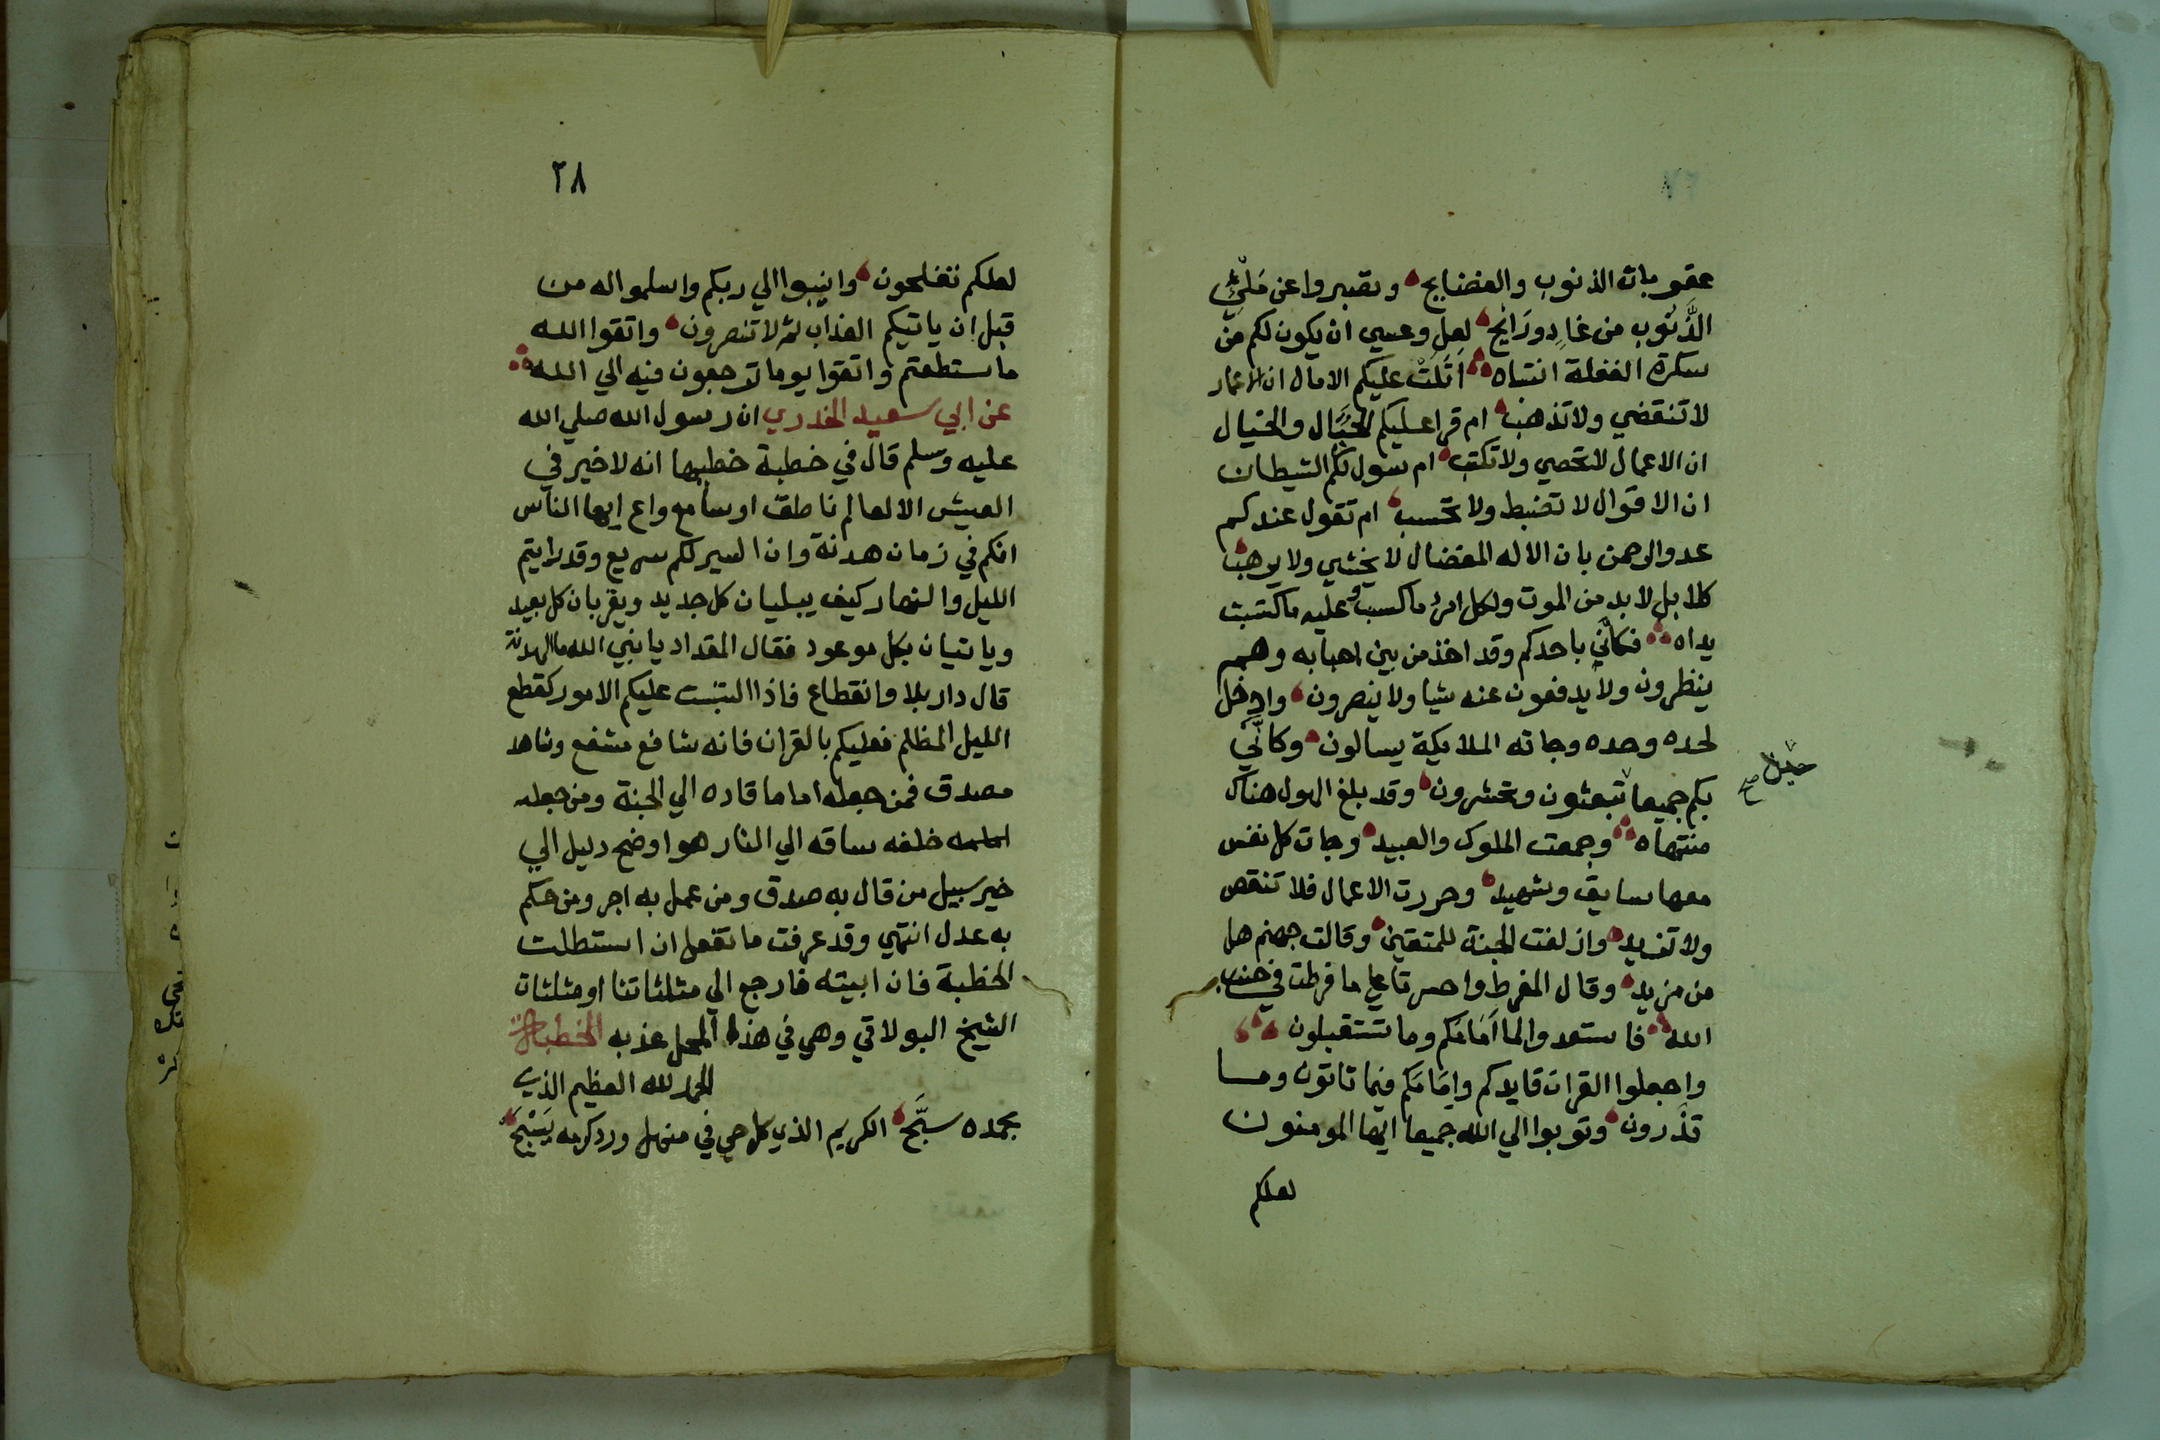 عقوبات الذنوب والفضايح وتصبروا عن
الذنوب من غادٍ ورايح لعل وعسي ان يكون لكم من
سكرة الغفلة انتباه اتليت عليكم الامال ان الاعمار
لا تنقضي ولا تذهب ام قرا عليكم الخبال والخيال
ان الاعمال لا تحصي ولا تكتب ام سول لكم الشيطان
ان الاقوال لا تضبط ولا تحسب ام تقول عندكم
عدو الرحمن بان الاله المفضال لا يخشي ولا يرهب
كلا بل لا بد من الموت ولكل امرء ما كسب وعليه ما كتسبت
يداه فكأني باحدكم وقد اخذ من بين احبابه وهم
ينظرون ولا يدفعون عنه شيا ولا ينصرون وادخل
لحده وحده وجاته الملايكة يسالون وكأني
بكم جميعا تبعثون وتحشرون وقد بلغ الهول هناك
منتهاه وجمعت الملوك والعبيد وجات كل نفس
معها سايق وشهيد وحررت الاعمال فلا تنقص
ولا تزيد وازلفت الجنة للمتقين وقالت جهنم هل
من مزيد وقال المفرط واحسرتا علي ما فرطت في جنب
الله فاستعدوا لما اَمَامَكم وما تستقبلون
واجعلوا القران قايدكم واِمَامَكم فيما تاتون وما
تذرون وتوبوا الي الله جميعا ايها المومنون
لعلكم
صح
٢٨
لعلكم تفلحون وانيبوا الي ربكم واسلموا له من
قبل ان ياتيكم العذاب ثم لا تنصرون واتقوا الله
ما ستطعتم واتقوا يوما ترجعون فيه الي الله
عن ابي سعيد الخدري ان رسول الله صلي الله
عليه وسلم قال في خطبة خطبها انه لا خير في
العيش الا لعالم ناطق او سامع واع ايها الناس
انكم في زمان هدنة وان السير لكم سريع وقد رايتم
الليل والنهار كيف يبليان كل جديد ويقربان كل بعيد
وياتيان بكل موعود فقال المقداد يا نبي الله ما الهدنة
قال دار بلا وانقطاع فاذا التبست عليكم الامور كقطع
الليل المظلم فعليكم بالقران فانه شافع مشفع وشاهد
مصدق فمن جعله اماما قاده الي الجنة ومن جعله
خلفه ساقه الي النار هو اوضح دليل الي
خير سبيل من قال به صدق ومن عمل به اجر ومن حكم
به عدل انتهي وقد عرفت ما تفعل ان استطلت
الخطبة فان ابيته فارجع الي مثلثاتنا او مثلثات
الشيخ البولاقي وهي في هذا المحل عذبه
الحمد لله العظيم الذي
بحمده سبَّح الكريم الذي كل حي في منهل ورد كرمه يَسْبَح